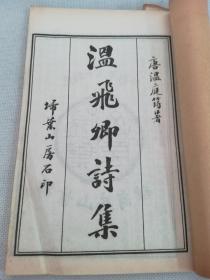 唐溫庭筠著
溫飛卿詩集
埽葉山房石印